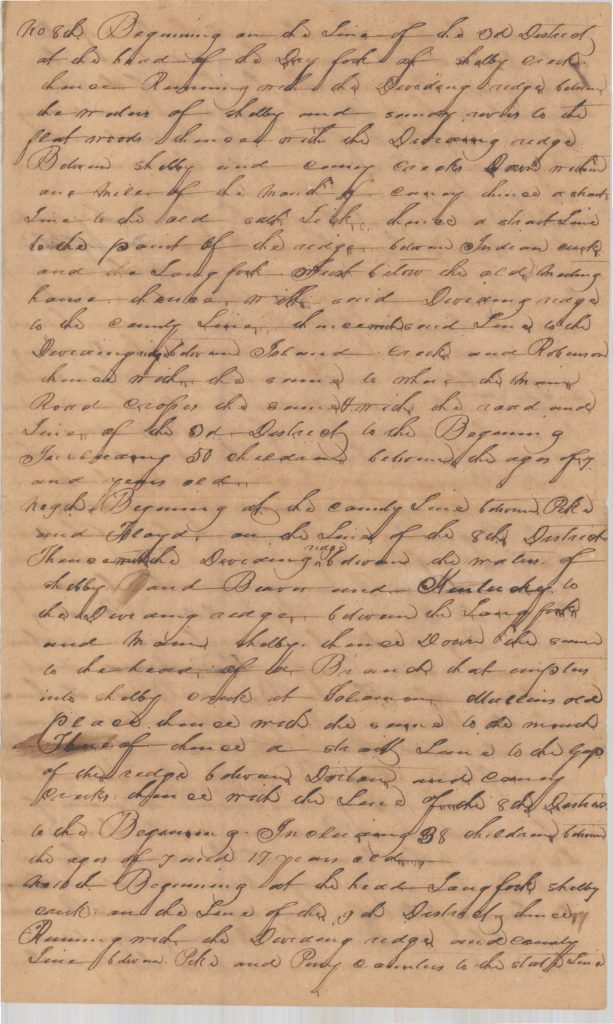 No 8th. Beginning on the Line of the 3d District
at the head of the Dry fork of Shelby creek
thence Running with the Dividing ridge between
the waters of Shelby and Sandy river to the
flat woods thence with the Dividing ridge
Between Shelby and caney creeks Down within
one mile of the Mouth of caney thence a strait
Line to the old salt Lick. thence a strait Line
to the point of the ridge between Indian creek
and the Long fork Just below the old meeting
house. thence with said Dividing ridge
to the county Line, thence with said Line to the
Dividing ridge between Island creek and Robinson
thence with the same to whare the Main
Road crosses the same & with the road and
Line of the 3d District to the Begining
Including 50 children between the ages of 7
and years old
No 9th. Begining at the county Line between Pike
and Floyd, on the Line of the 8th District
Thence with the Dividing ridge between the waters of
Shelby and Beaver and Kentucky to
the Dividing ridge between the Long fork
and Main Shelby. thence Down the same
to the head of a Branch that emptys
into Shelby creek at Solomon Mullins old
place thence with the same to the mouth
Thereof thence a strait Line to the Gap
of the ridge between Dorton and caney
creeks thence with the Line of the 8th District
to the Begining. Including 38 children between
the ages of 7 and 17 years old
No 10th. Beginning at the head Long fork Shelby
creek on the Line of the 9th District thence
Running with the Dividing ridge and county
Line between Pike and Perry counties to the state Line